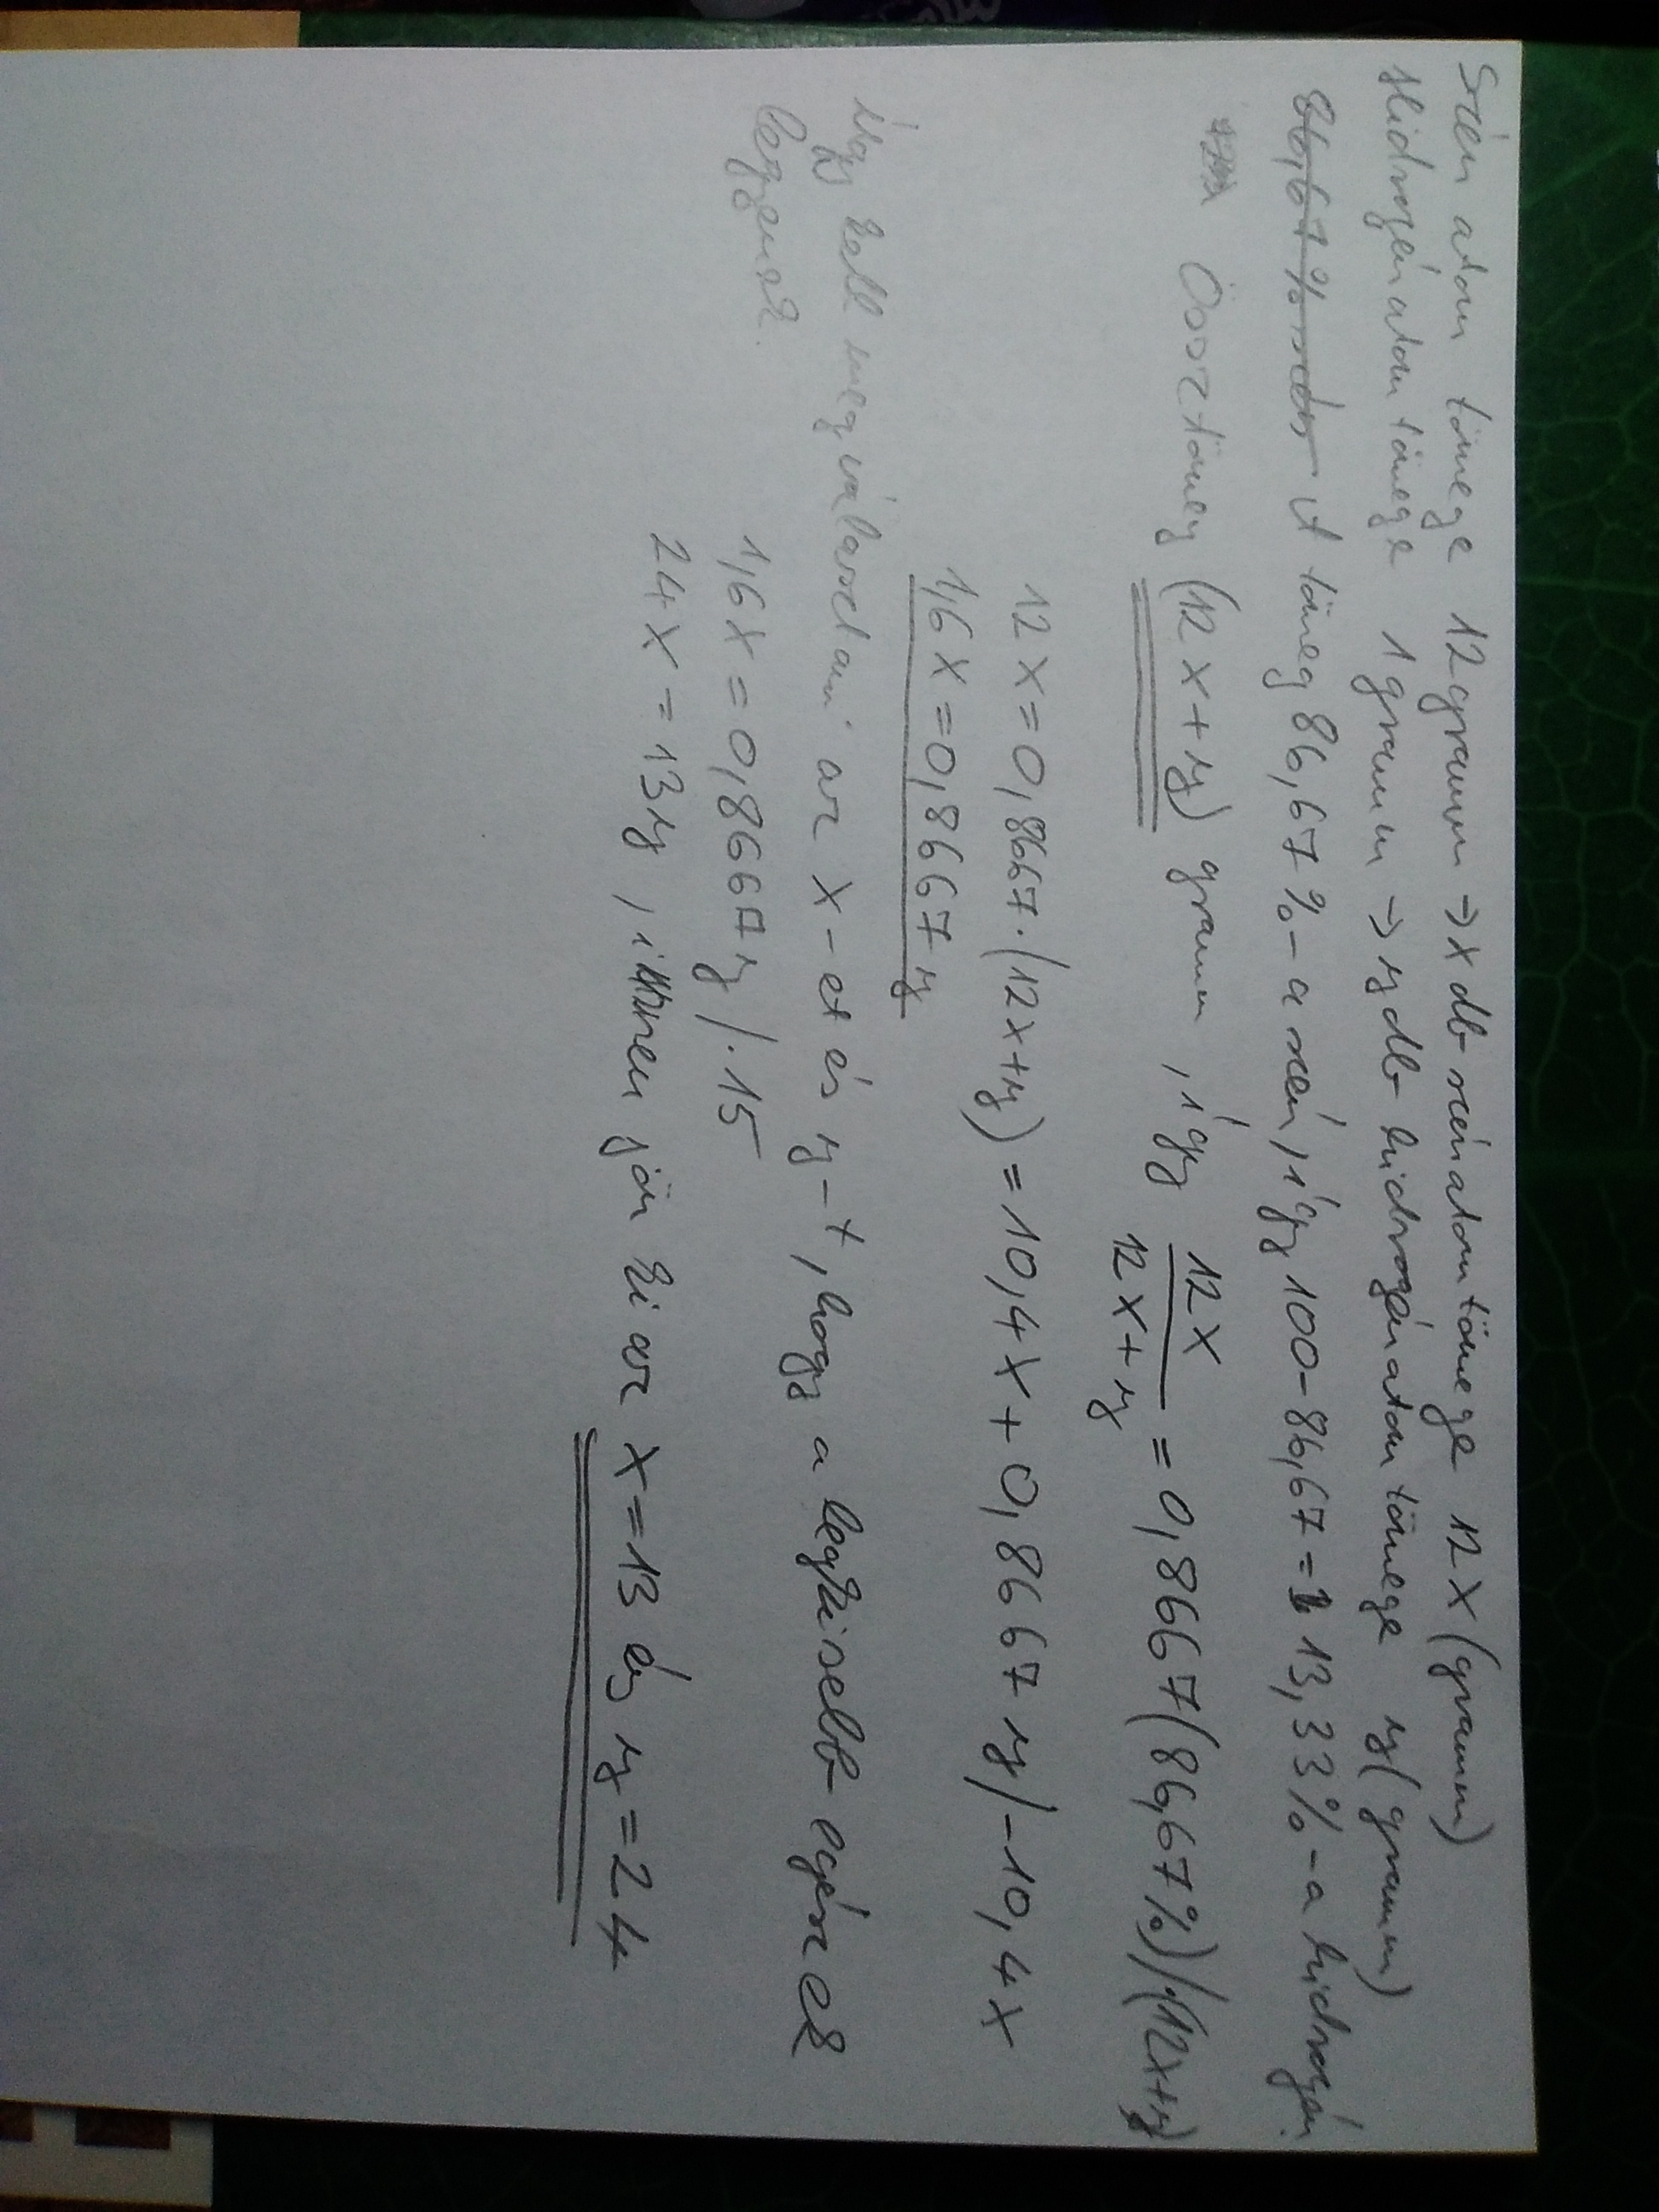 Szén atom tömege 12 gramm → x db szénatom tömege 12x (gramm)
Hidrogén atom tömege 1 gramm → y db hidrogénatom tömege y (gramm)
86,67% szén A tömeg 86,67%-a szén, így 100-86,67= 13,33%-a hidrogén
Össztömeg (12x+y) gramm, így 12x/(12x+y) = 0,8667 (86,67%) /·(12x+y)
12x=0,8667·(12x+y) = 10,4x+0,8667y /-10,4x
1,6x=0,8667y
Úgy kell megválasztani az x-et és y-t, hogy a legkisebb egészek
legyenek.
1,6x=0,8667y /·15
24x=13y, innen jön ki az x=13 és y=24